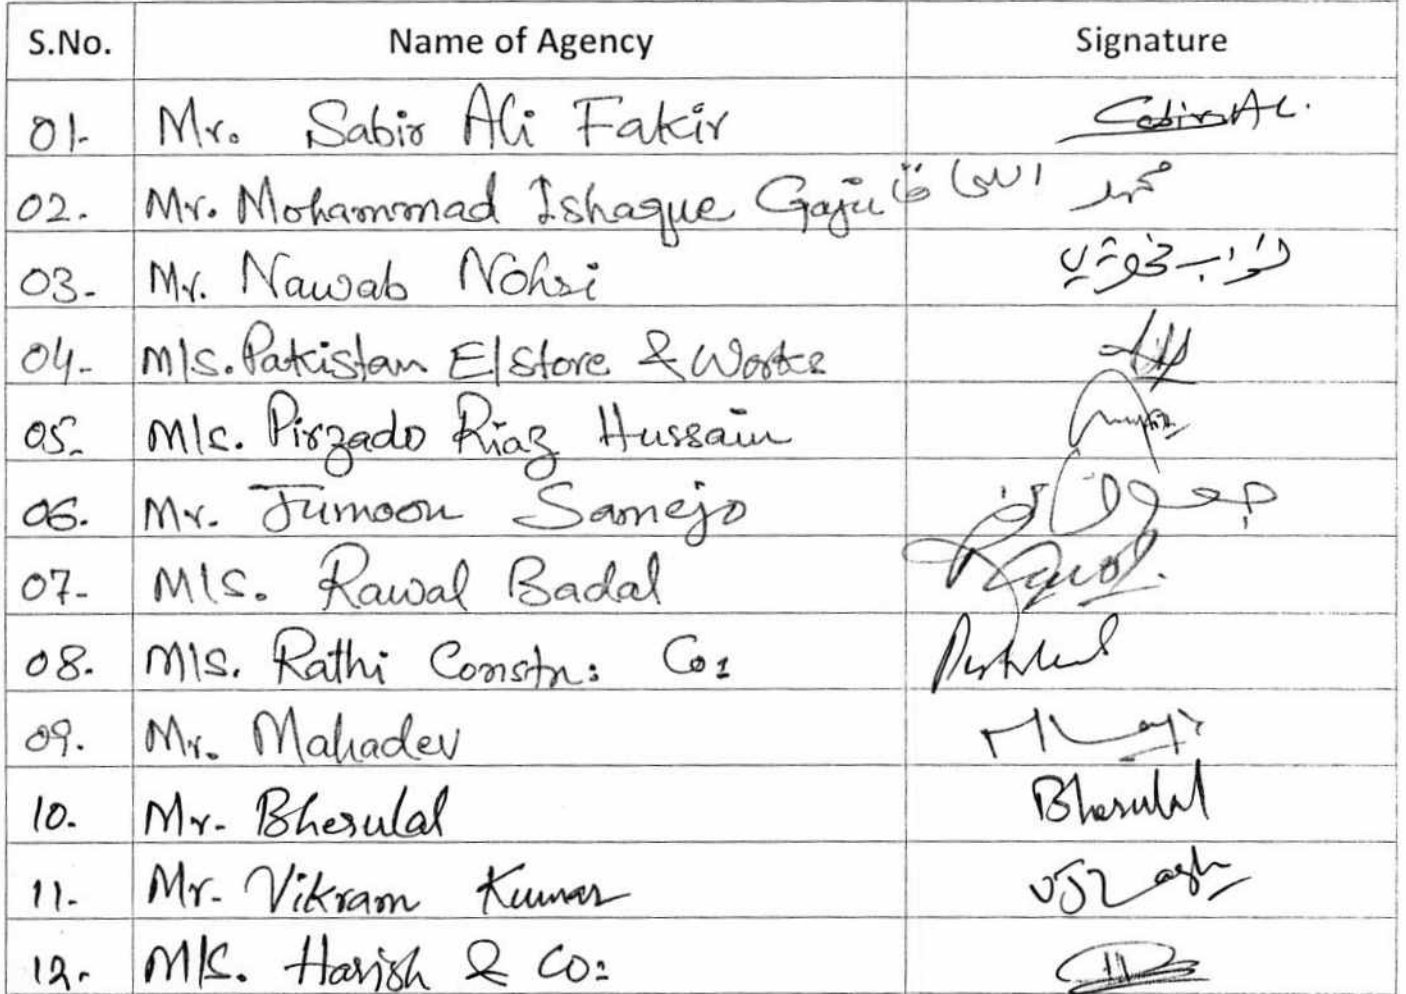 S.No. Name of Agency Signature
01- Mr. Sabir Ali Fakir
02. Mr. Mohammad Ishaque Gaju محمد
03- Mr. Nawab Nohri نواب
04- M/s. Pakistan E/store & Works
05- M/s. Pirzado Riaz Hussain
06. Mr. Jumoon Samejo
07- M/S. Rawal Badal Rawal.
08. M/S. Rathi Constn: Co:
09. Mr. Mahadev
10. Mr. Bherulal Bherulal
11- Mr. Vikram Kumar
12- M/S. Harish & Co: